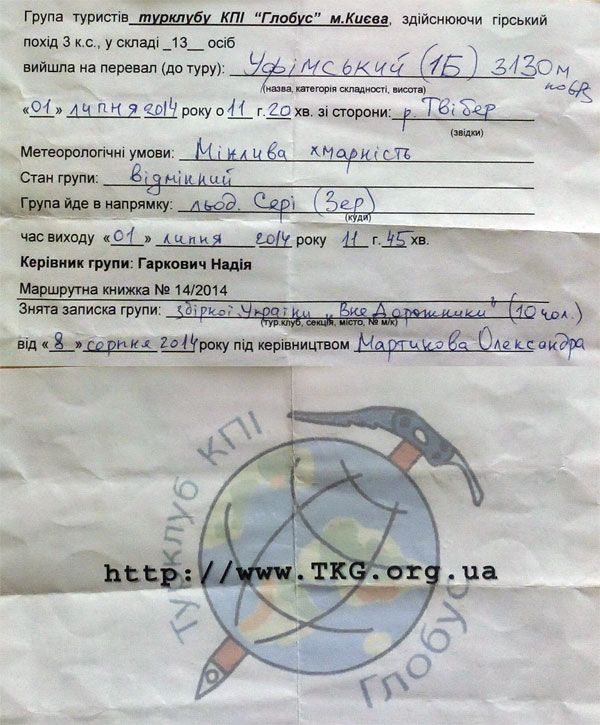 Група туристів турклубу КПІ "Глобус" м.Києва, здійснюючи гірський
похід 3 к.с., у складі _13__ осіб
вийшла на перевал (до туру): Уфімський (1Б) 3130м
(назва, категорія складності, висота)
по GPS
«01» липня 2014 року о 11 г. 20 хв. зі сторони: р. Твібер
(звідки)
Метеорологічні умови: Мінлива хмарність
Стан групи: відмінний
Група йде в напрямку: льод. Сері (Зер)
(куди)
час виходу «01» липня 2014 року 11 г. 45 хв.
Керівник групи: Гаркович Надія
Маршрутна книжка № 14/2014
Знята записка групи: збірної України „Вне Дорожники" (10 чол.)
(тур.клуб, секція, місто, № м/к)
від «8» серпня 2014 року під керівництвом Мартикова Олександра
Турклуб КПІ
http://www.TKG.org.ua
Глобус